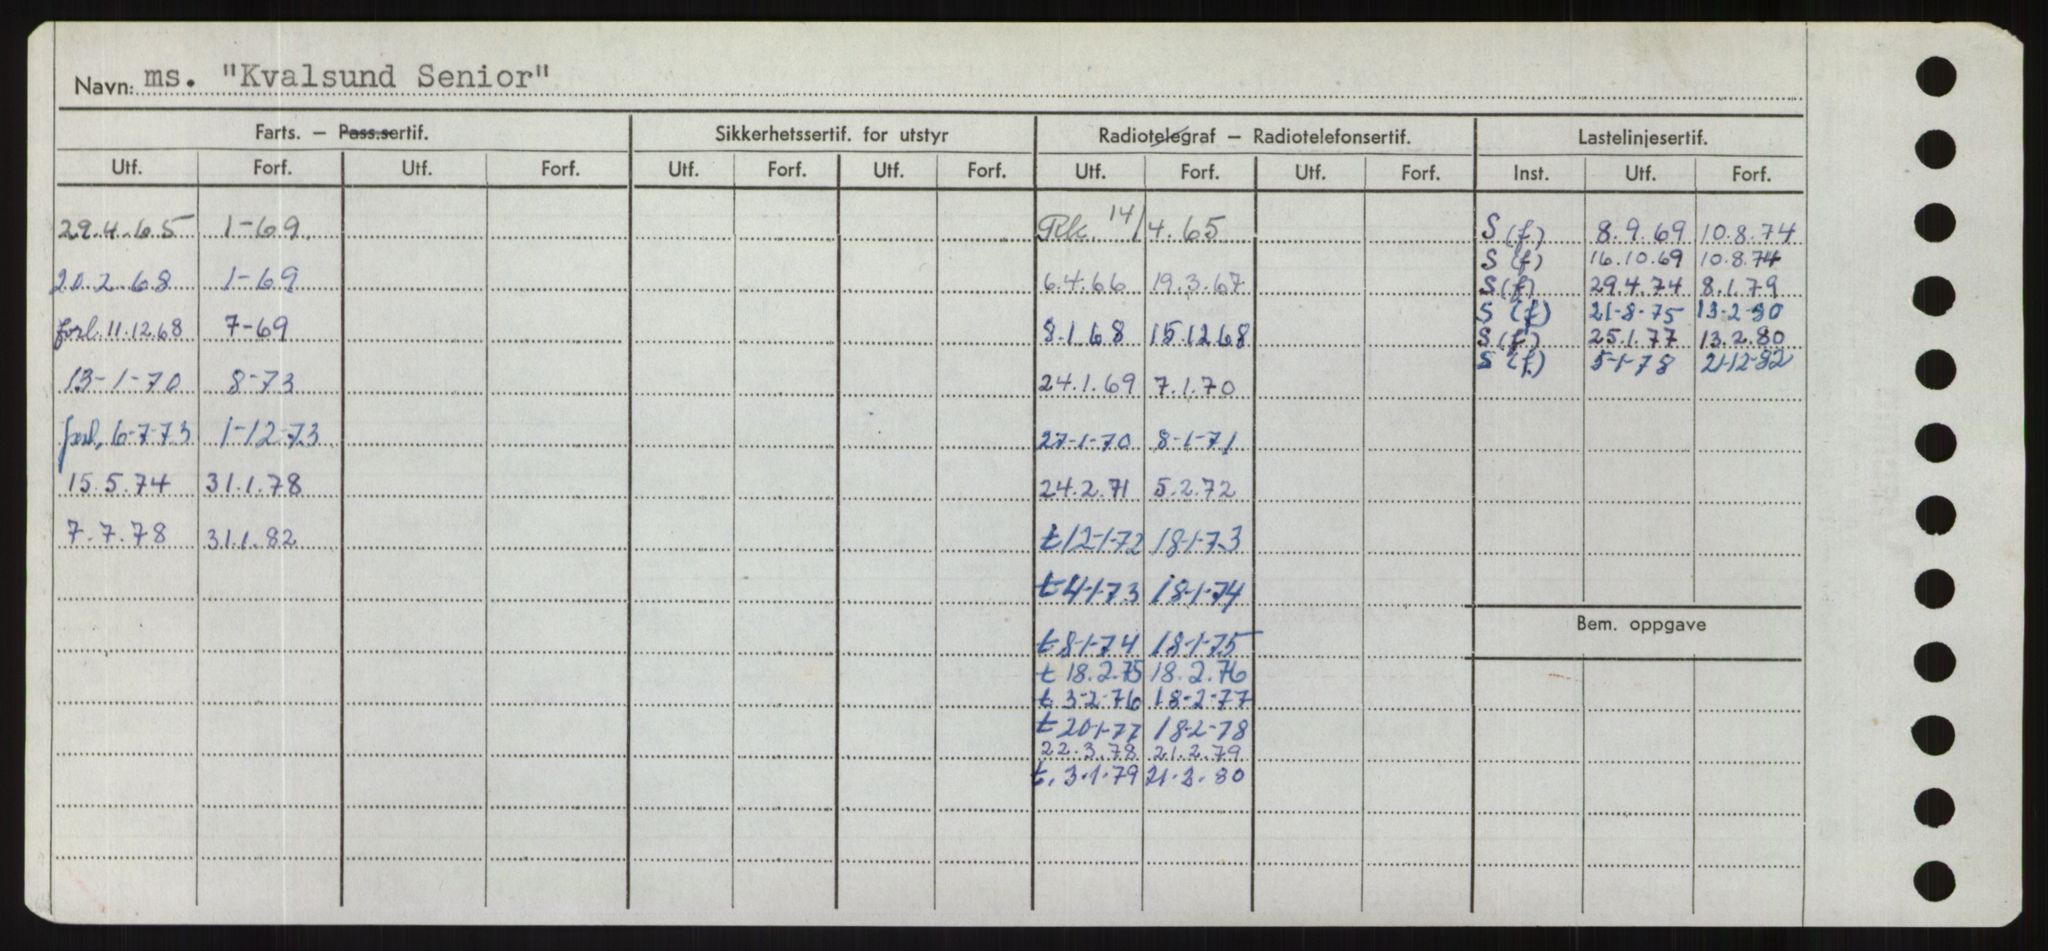 Navn: ms. "Kvalsund Senior"
Farts. – Pass.sertif. Sikkerhetssertif. for utstyr Radiotelegraf – Radiotelefonsertif. Lastelinjesertif.
Utf. Forf. Utf. Forf. Utf. Forf. Utf. Forf. Utf. Forf. Utf. Forf. Inst. Utf. Forf.
29.4.65 1-69 14/4.65 S(f) 8.9.69 10.8.74
S(f) 16.10.69 10.8.74
20.2.68 1-69 6.4.66 19.3.67 S(f) 29.4.74 8.1.79
S(f) 21-8-75 13-2-80
forl. 11.12.68 7-69 8.1.68 15.12.68 S(f) 25.1.77 13.2.80
S(f) 5-1-78 21-12-82
13-1-70 8-73 24.1.69 7.1.70
forl. 6-7-73 1-12-73 27-1-70 8-1-71
15.5.74 31.1.78 24.2.71 5.2.72
7.7.78 31.1.82 t 12-1-72 18-1-73
t 4-1-73 18-1-74
Bem. oppgave
t 8-1-74 18-1-75
t 18.2.75 18.2.76
t 3-2-76 18-2-77
t 20-1-77 18-2-78
22.3.78 21.2.79
t. 3.1.79 21.2.80